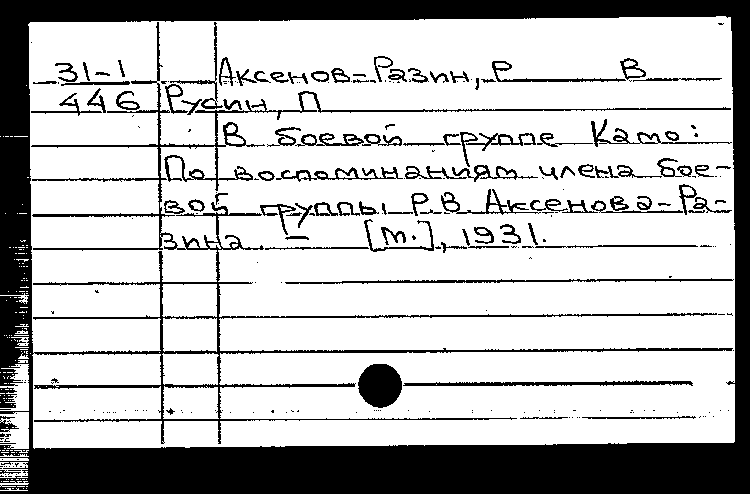 31-1 Аксенов-Разин, Р В
446 Русин, П
В боевой группе Камо:
По воспоминаниям члена бое-
вой группы Р.В. Аксенова-Ра-
зина. – [М.], 1931.